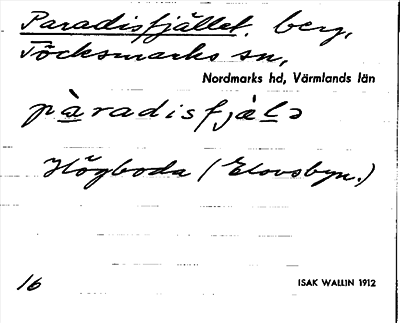 Paradisfjället, berg,
Töcksmarks sn,
Nordmarks hd, Värmlands län
pàradisfjälə
Högboda (Elovsbyn.)
16
ISAK WALLIN 1912